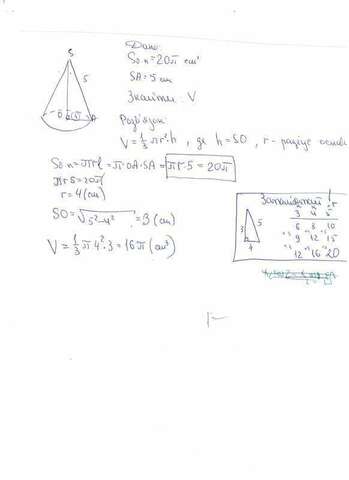 S
5
O
A
Дано:
Sб.п.=20π см²
SA=5 см
Знайти: V
Розв'язок
V=⅓πr²·h, де h=SO, r - радіус основи
Sб.п.=πrl=π·OA·SA=πr·5=20π
πr5=20π
r=4(см)
SO=√5²-4²=3(см)
V=⅓π4²·3=16π(см³)
3
5
4
3 4 5
6 8 10
9 12 15
12 16 20